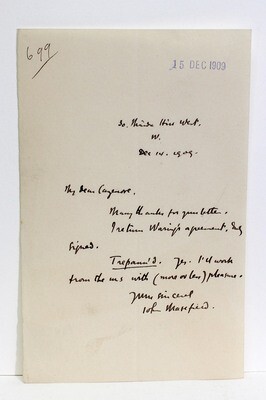 699
15 DEC 1909
30, Maida Hill West.
W.
Dec 14. 1909.
My dear Cazenove.
Many thanks for your letter.
I return Waring's agreement, duly
signed.
Trepann'd. Yes. I'd work
from the m s with (more or less) pleasure.
Yours sincerely
John Masefield.